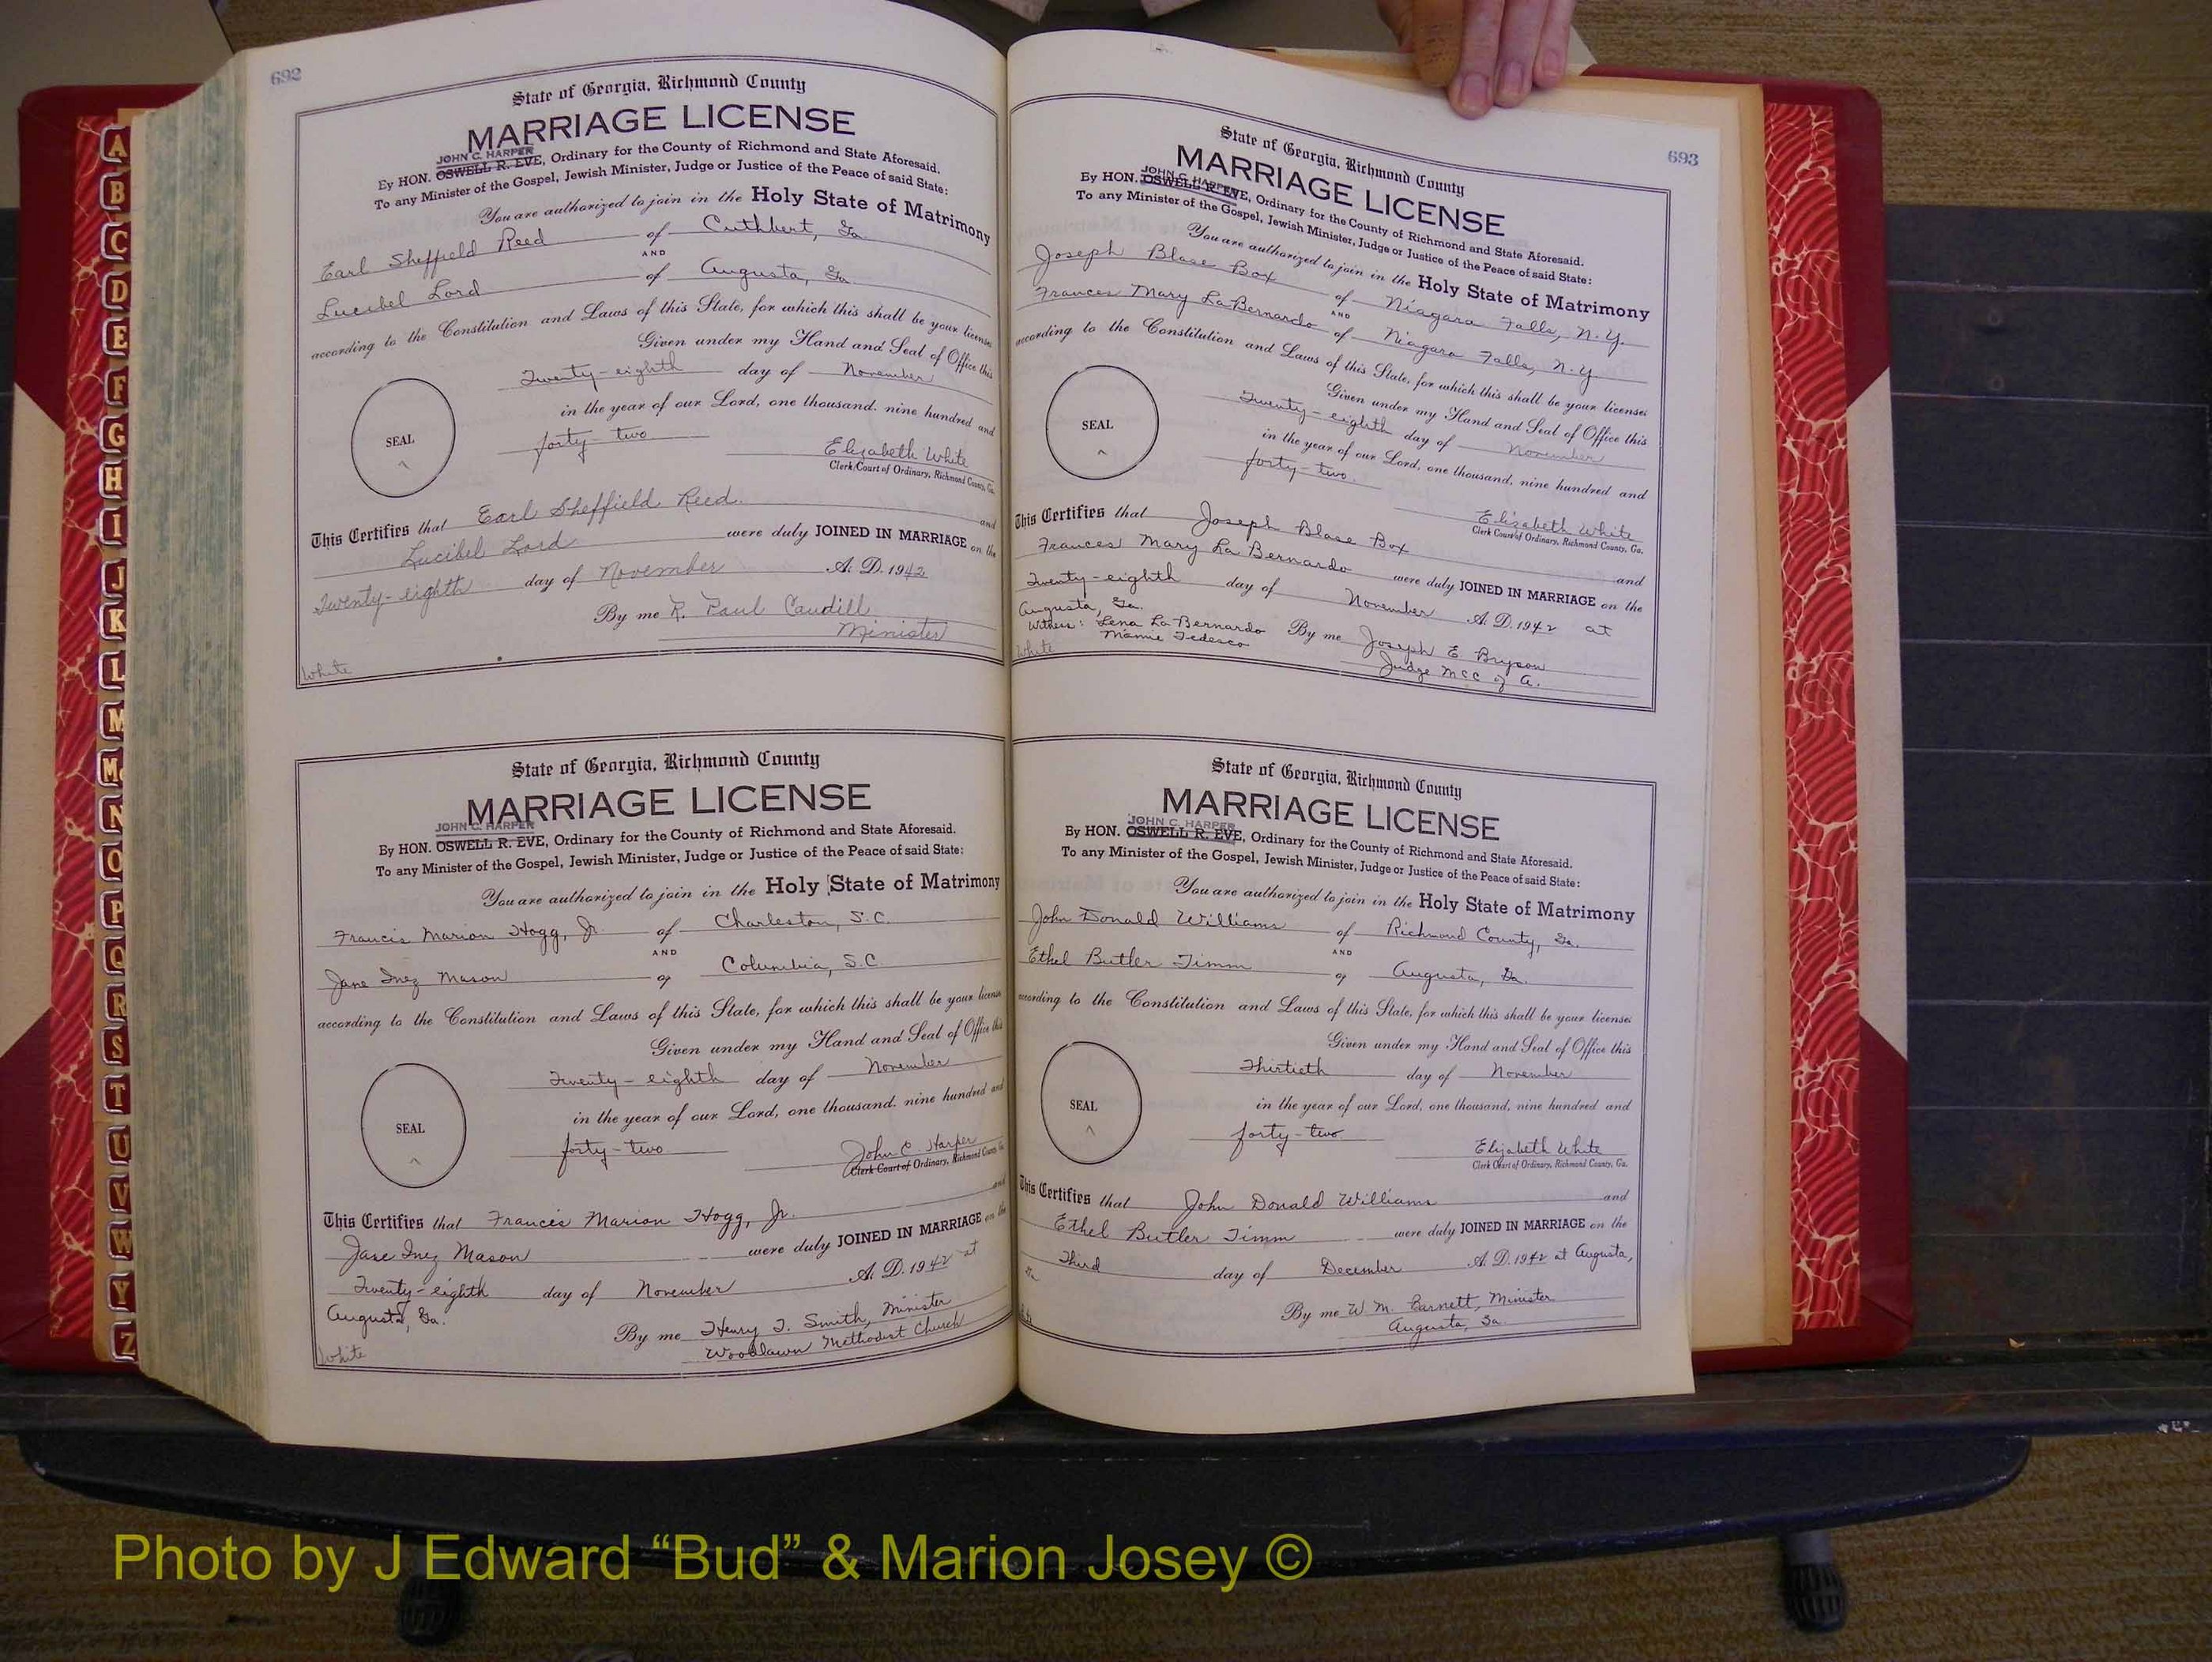 692
State of Georgia, Richmond County
MARRIAGE LICENSE
JOHN C. HARPER
By HON. OSWELL R. EVE, Ordinary for the County of Richmond and State Aforesaid.
To any Minister of the Gospel, Jewish Minister, Judge or Justice of the Peace of said State:
You are authorized to join in the Holy State of Matrimony
Earl Sheffield Reed of Cuthbert, Ga.
AND
Lucibel Lord of Augusta, Ga.
according to the Constitution and Laws of this State, for which this shall be your license
Given under my Hand and Seal of Office this
Twenty-eighth day of November
in the year of our Lord, one thousand. nine hundred and
SEAL
forty-two
Elizabeth White
Clerk Court of Ordinary, Richmond County, Ga.
This Certifies that Earl Sheffield Reed and
Lucibel Lord were duly JOINED IN MARRIAGE on the
Twenty-eighth day of November A. D. 1942
By me R. Paul Caudill
Minister
White
State of Georgia, Richmond County
MARRIAGE LICENSE
JOHN C. HARPER
By HON. OSWELL R. EVE, Ordinary for the County of Richmond and State Aforesaid.
To any Minister of the Gospel, Jewish Minister, Judge or Justice of the Peace of said State:
You are authorized to join in the Holy State of Matrimony
Francis Marion Hogg, Jr. of Charleston, S.C.
AND
Jane Inez Mason of Columbia, S.C.
according to the Constitution and Laws of this State, for which this shall be your license
Given under my Hand and Seal of Office this
Twenty-eighth day of November
in the year of our Lord, one thousand. nine hundred and
SEAL
forty-two
John C Harper
Clerk Court of Ordinary, Richmond County Ga.
This Certifies that Francis Marion Hogg, Jr. and
Jane Inez Mason were duly JOINED IN MARRIAGE on the
Twenty-eighth day of November A. D. 1942 at
Augusta, Ga.
By me Henry T. Smith, Minister
Woodlawn Methodist Church
White
693
State of Georgia, Richmond County
MARRIAGE LICENSE
JOHN C. HARPER
By HON. OSWELL R. EVE, Ordinary for the County of Richmond and State Aforesaid.
To any Minister of the Gospel, Jewish Minister, Judge or Justice of the Peace of said State:
You are authorized to join in the Holy State of Matrimony
Joseph Blase Box of Niagara Falls, N.Y.
AND
Frances Mary LaBernardo of Niagara Falls, N.Y.
according to the Constitution and Laws of this State, for which this shall be your license
Given under my Hand and Seal of Office this
Twenty-eighth day of November
in the year of our Lord, one thousand, nine hundred and
SEAL
forty-two
Elizabeth White
Clerk Court of Ordinary, Richmond County, Ga.
This Certifies that Joseph Blase Box and
Frances Mary La Bernardo were duly JOINED IN MARRIAGE on the
Twenty-eighth day of November A. D. 1942 at
Augusta, Ga.
Witness: Lena La Bernardo
Mamie Tedesco
By me Joseph E. Bryson
Judge MCC of A.
White
State of Georgia, Richmond County
MARRIAGE LICENSE
JOHN C. HARPER
By HON. OSWELL R. EVE, Ordinary for the County of Richmond and State Aforesaid.
To any Minister of the Gospel, Jewish Minister, Judge or Justice of the Peace of said State:
You are authorized to join in the Holy State of Matrimony
John Donald Williams of Richmond County, Ga.
AND
Ethel Butler Timm of Augusta, Ga.
according to the Constitution and Laws of this State, for which this shall be your license
Given under my Hand and Seal of Office this
Thirtieth day of November
in the year of our Lord, one thousand, nine hundred and
SEAL
forty-two
Elizabeth White
Clerk Court of Ordinary, Richmond County, Ga.
This Certifies that John Donald Williams and
Ethel Butler Timm were duly JOINED IN MARRIAGE on the
Third day of December A. D. 1942 at Augusta,
Ga
By me W. M. Barnett, Minister
Augusta, Ga.
A
B
C
D
E
F
G
H
I
J
K
L
M
Mc
N
O
P
Q
R
S
T
U
V
W
Y
Z
Photo by J Edward “Bud” & Marion Josey ©